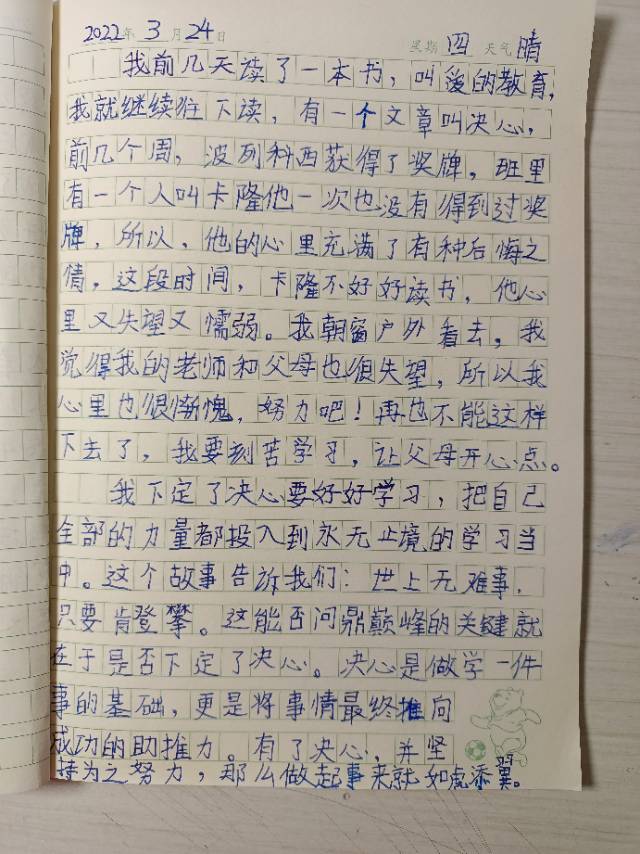 2022年 3月 24日 星期 四 天气 晴
我前几天读了一本书，叫爱的教育，
我就继续往下读，有一个文章叫决心，
前几个周，波列科西获得了奖牌，班里
有一个人叫卡隆他一次也没有得到过奖
牌，所以，他的心里充满了有种后悔之
情，这段时间，卡隆不好好读书，他心
里又失望又懦弱。我朝窗户外看去，我
觉得我的老师和父母也很失望，所以我
心里也很惭愧，努力吧！再也不能这样
下去了，我要刻苦学习，让父母开心点。
我下定了决心要好好学习，把自己
全部的力量都投入到永无止境的学习当
中。这个故事告诉我们：世上无难事，
只要肯登攀。这能否问鼎巅峰的关键就
在于是否下定了决心。决心是做学一件
事的基础，更是将事情最终推向
成功的助推力。有了决心，并坚
持为之努力，那么做起事来就如虎添翼。